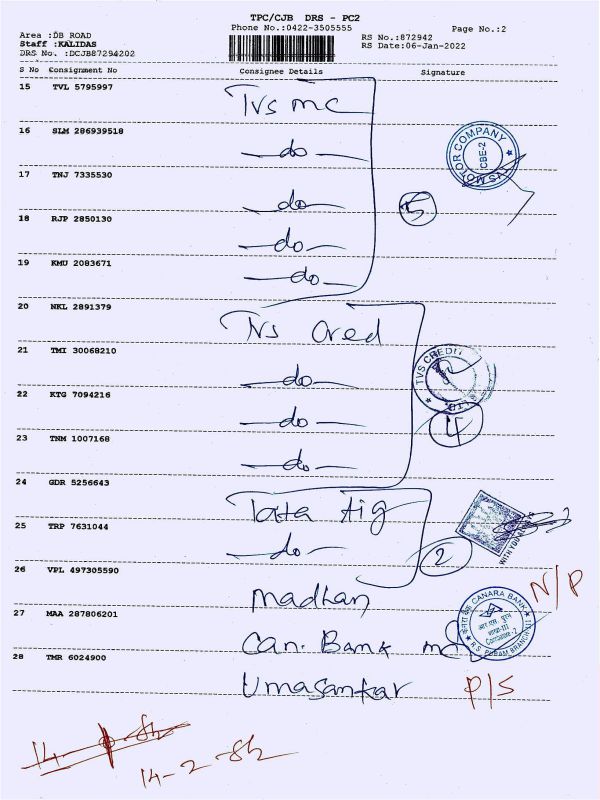 TPC/CJB DRS - PC2
Phone No.:0422-3505555
Page No.:2
Area :DB ROAD
Staff :KALIDAS
DRS No. :DCJB87294202
RS No.:872942
RS Date:06-Jan-2022
S No Consignment No Consignee Details Signature
15 TVL 5795997 Tvs mc
16 SLM 286939518 -do-
TVS MOTOR COMPANY
CBE-2
17 TNJ 7335530 -do-
5
18 RJP 2850130 -do-
19 KMU 2083671 -do-
20 NKL 2891379 Tvs Cred
21 TMI 30068210 -do-
TVS CREDIT
22 KTG 7094216 -do-
4
23 TNM 1007168 -do-
24 GDR 5256643 Tata Aig
25 TRP 7631044 -do-
WITH YOU
2
26 VPL 497305590 Madhan N/P
27 MAA 287806201 Can. Bank
केनरा बैंक CANARA BANK
आर एस पुरम
शाखा-III
Coimbatore-2
R S PURAM BRANCH III
28 TMR 6024900 Umasankar P/S
14-2-Sh